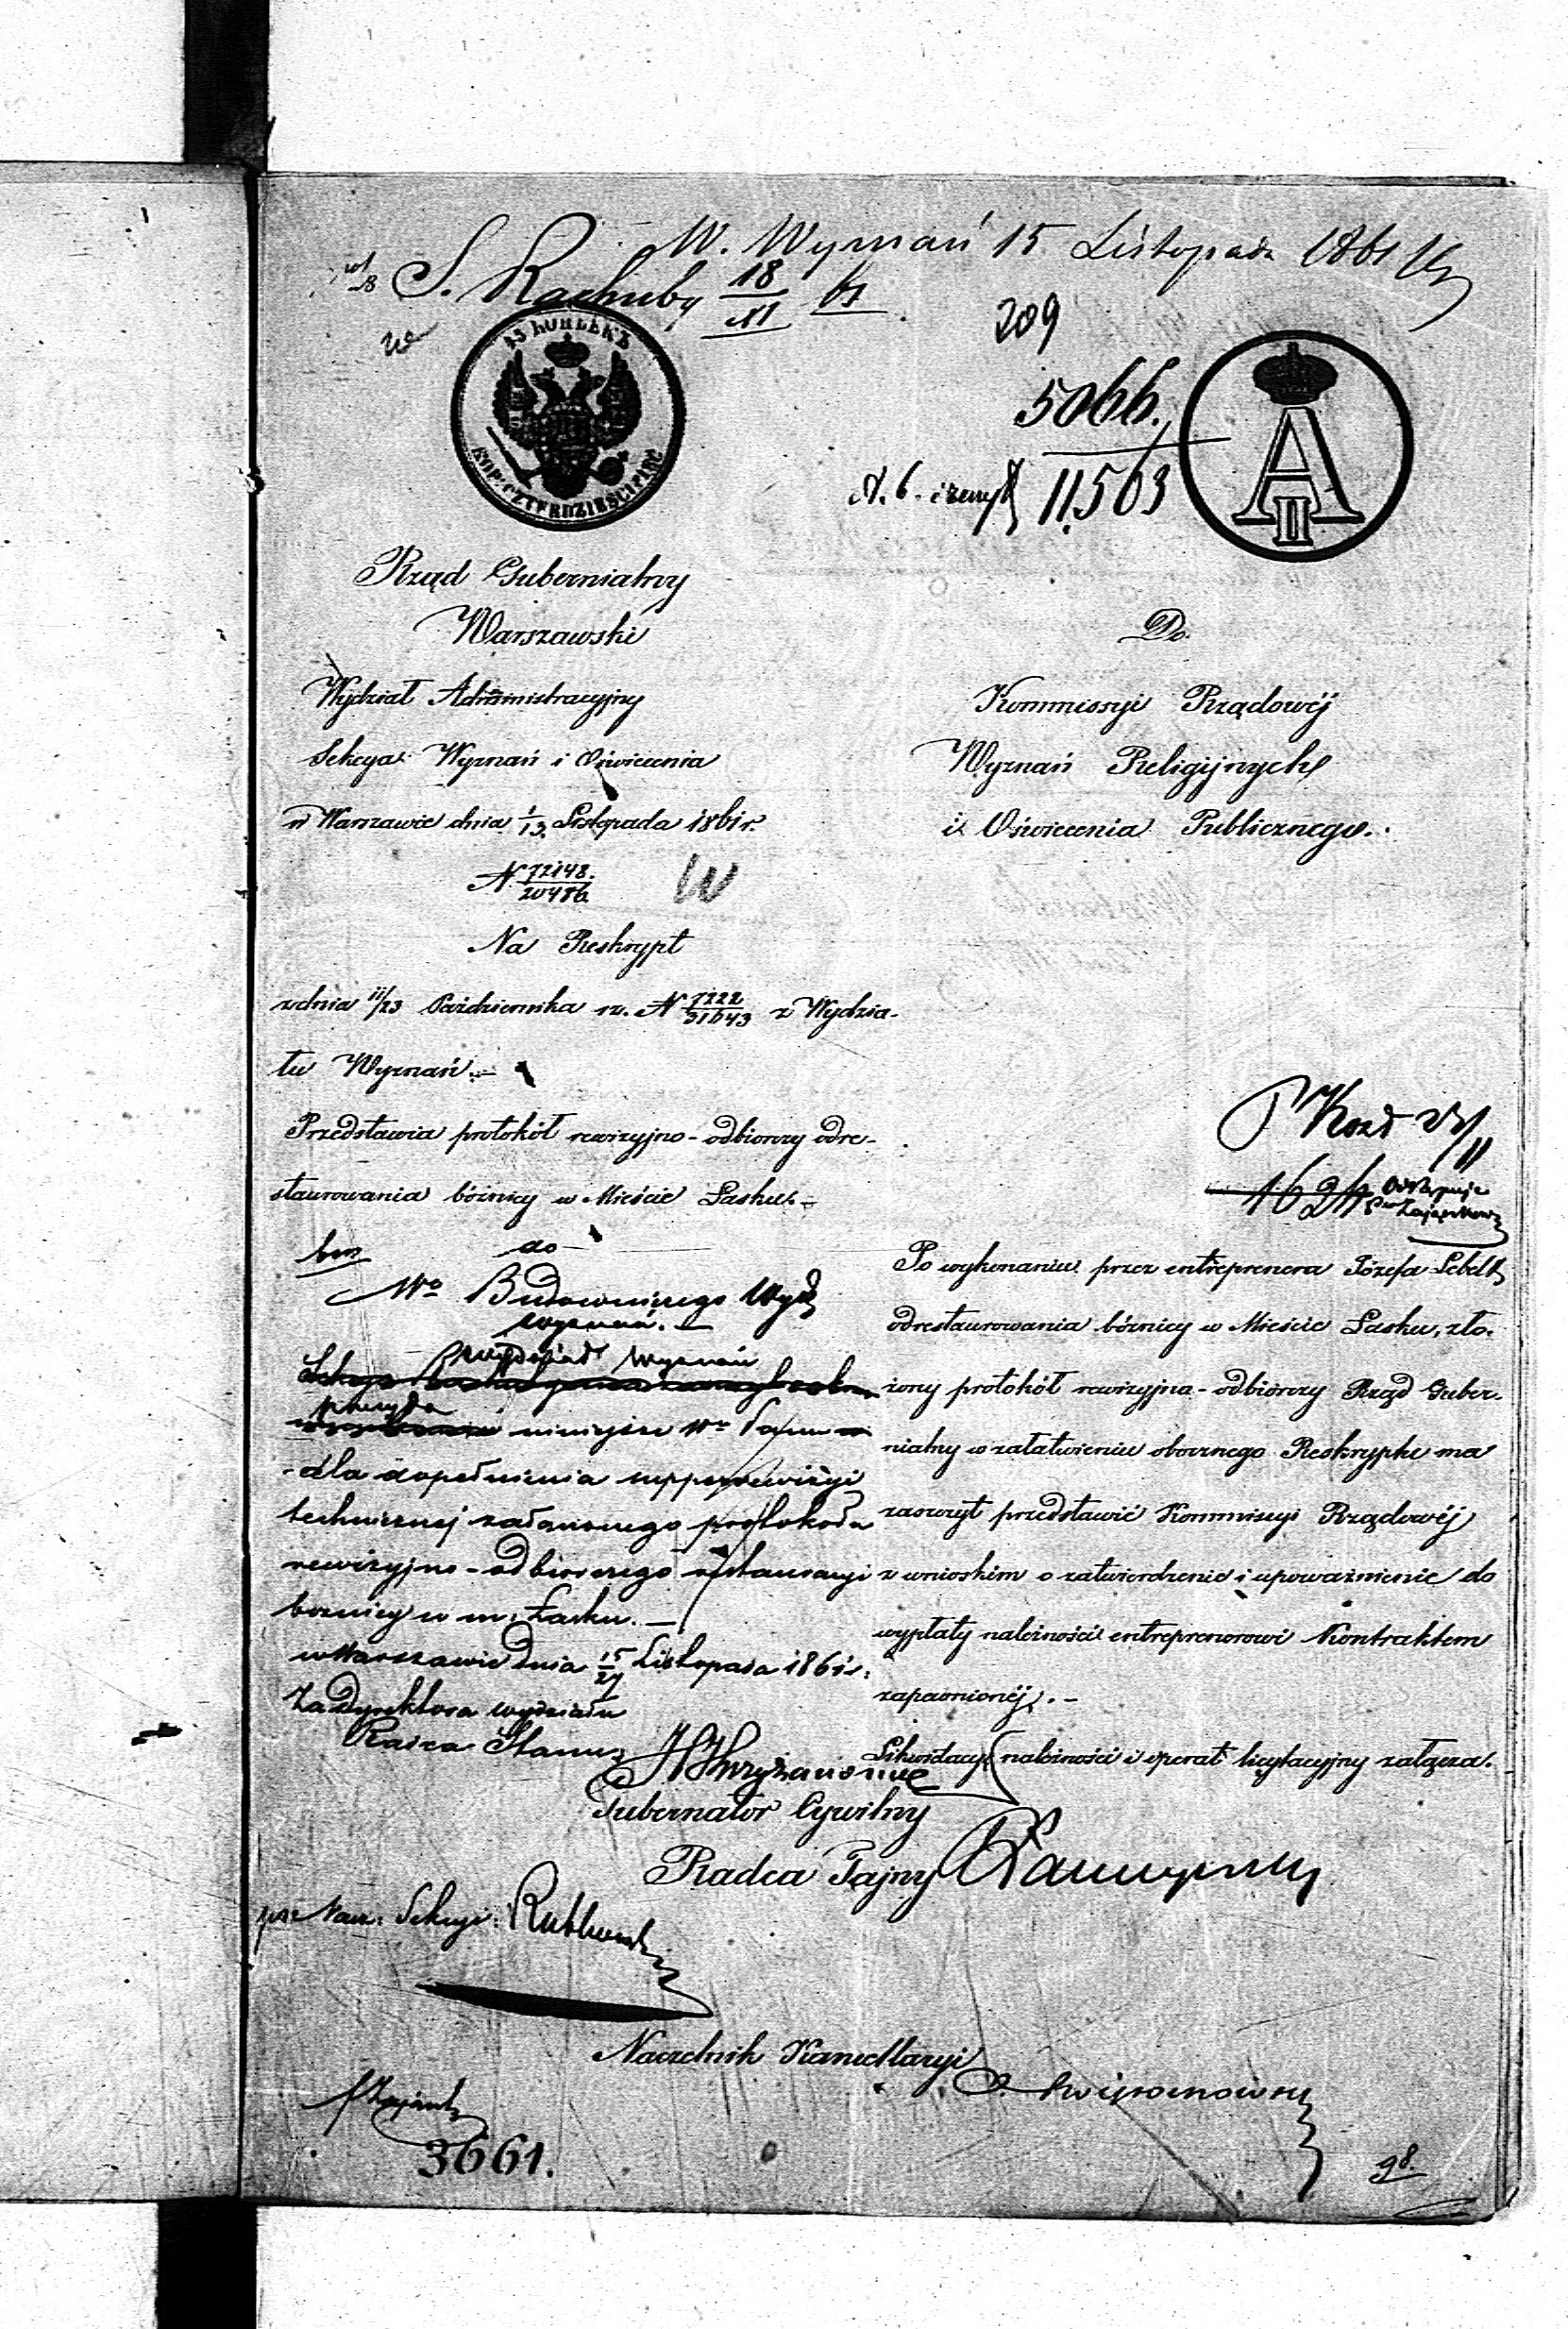 W. Wyznań 15 Listopada 1861
S. Rachuby 18/XI 61
209
15 KOPIEEKЪ
KOP: CZTERDZIESCI PIĘĆ
5066.
11,563
A II
Rząd Gubernialny
Warszawski
Wydział Administracyjny
Sekcya Wyznań i Oświecenia
w Warszawie dnia 1/13 Listopada 1861 r.
N 72148./20486
W
Na Reskrypt
z dnia 11/23 Października r.b. N 7222/31643 z Wydzia-
łu Wyznań.-
Przedstawia protokół rewizyjno-odbiorczy odre-
staurowania bóżnicy w Mieście Łasku.-
Do
Kommissyi Rządowéj
Wyznań Religijnych
i Oświecenia Publicznego.
1624
Po wykonaniu przez entreprenera Józefa Lebelt
odrestaurowania bóżnicy w Mieście Łasku, zło-
żony protokół rewizyjno-odbiorczy Rząd Guber-
nialny w załatwieniu obocznego Reskryptu ma
zaszczyt przedstawić Kommissyi Rządowéj
z wnioskiem o zatwierdzenie i upoważnienie do
wypłaty należności entreprenerowi Kontraktem
zapewnionéj.-
Likwidacye należności i operat licytacyjny załącza.
do
Wo Budowniczego Wydz
Wyznań.-
Wydział Wyznań
przesyła
niniejsze Wu Panu
dla dopełnienia superrewizyi
technicznej załączonego protokołu
rewizyjno-odbiorczego restauracyi
bożnicy w m. Łasku.-
w Warszawie dnia 15/27 Listopada 1861 r.
Za Dyrektora Wydziału
Radca Stanu
Gubernator Cywilny
Radca Tajny
Nacz: Sekcyi:
Naczelnik Kancellaryi
3661.
98.